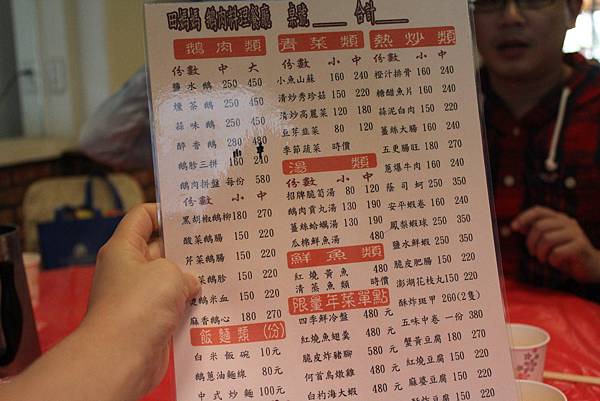 田媽媽 鵝肉料理餐廳 桌號____ 合計____
鵝肉類
份數 中 大
鹽水鵝 250 450
燻茶鵝 250 450
蒜味鵝 250 450
醉香鵝 280 480
鵝胗三拼 160 240
鵝肉拼盤 每份 580
份數 小 中
黑胡椒鵝柳 180 270
酸菜鵝腸 150 220
芹菜鵝腸 150 220
菜鵝胗 150 220
鵝米血 150 220
麻香鵝心 180 270
飯麵類(份)
白米飯碗 10元
鵝蔥油麵線 80元
中式炒麵 100元
青菜類
份數 小 中
小魚山蘇 160 240
清炒秀珍菇 150 220
清炒高麗菜 120 180
豆芽韭菜 80 120
季節蔬菜 時價
湯類
份數 小 中
招牌脆筍湯 80 120
鵝肉貢丸湯 130 180
薑絲蛤蠣湯 130 180
瓜棉鮮魚湯 480
鮮魚類
紅燒黃魚 480
清蒸魚類 時價
限量年菜單點
四季鮮冷盤 480元
紅燒魚翅羹 480元
脆皮炸豬腳 580元
何首烏燉雞 480元
白灼海大蝦 480元
熱炒類
份數 小 中
橙汁排骨 160 240
糖醋魚片 160 240
蒜泥白肉 150 220
薑絲大腸 160 240
五更腸旺 180 270
蔥爆牛肉 160 240
蔭司蚵 250 350
安平蝦卷 160 240
鳳梨蝦球 250 350
鹽水鮮蝦 250 350
脆皮肥腸 150 220
澎湖花枝丸 150 220
酥炸斑甲 260(2隻)
五味中卷 一份 380
蟹黃豆腐 180 270
紅燒豆腐 150 220
麻婆豆腐 150 220
150 220